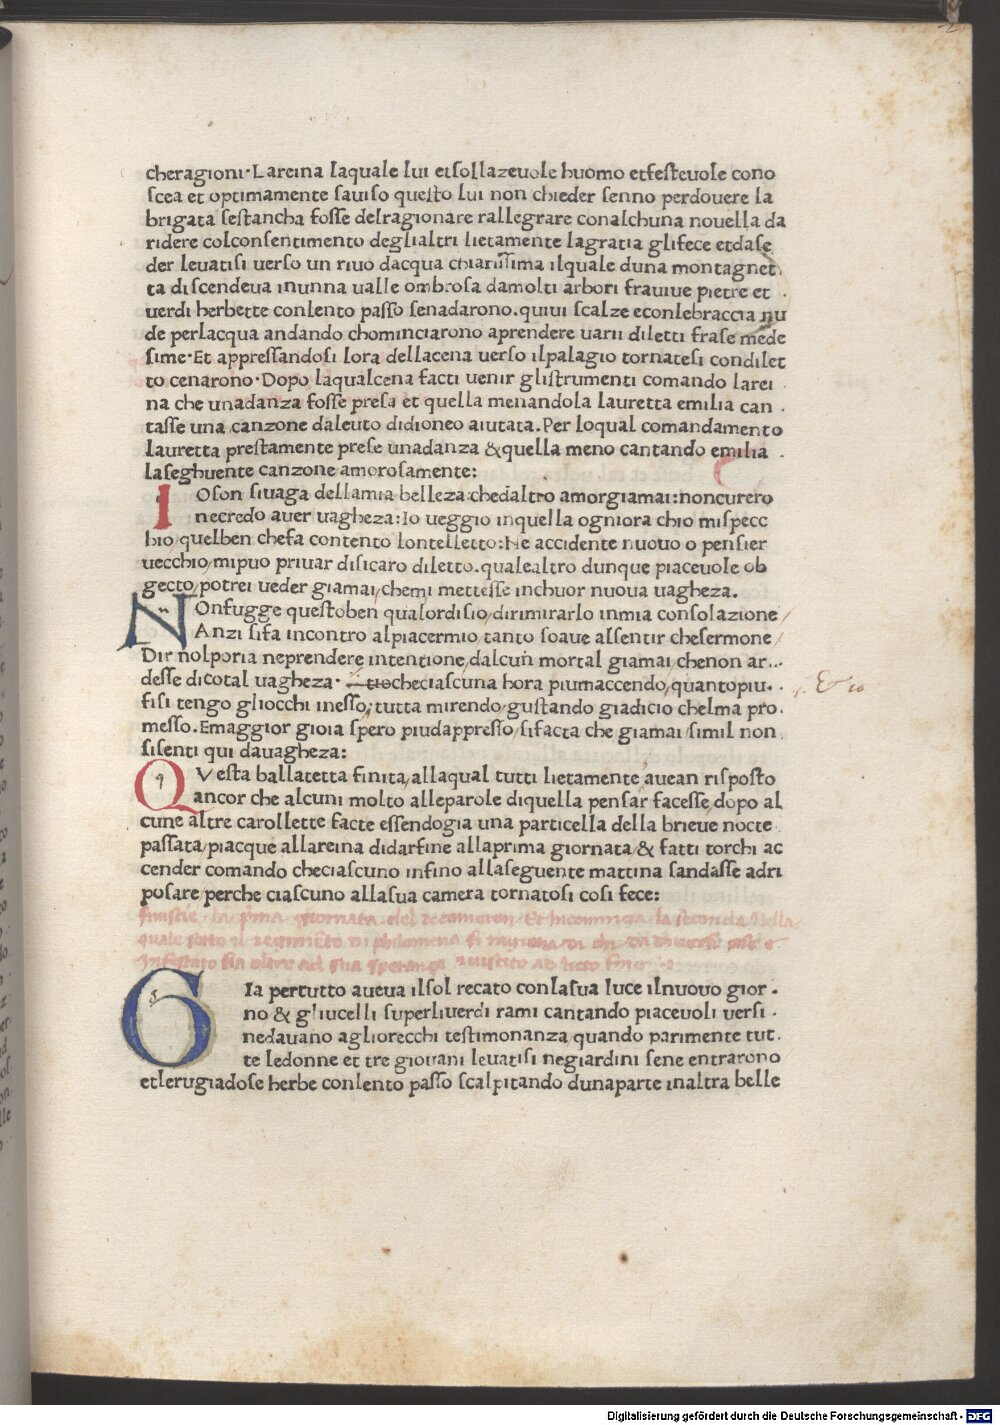 cheragioni·Lareina laquale lui etsollazeuole huomo etfesteuole cono
scea et optimamente sauiso questo lui non chieder senno perdouere la
brigata sestancha fosse delragionare rallegrare conalchuna nouella da
ridere colconsentimento deglialtri lietamente lagratia glifece etdase
der leuatisi uerso un riuo dacqua chiarissima ilquale duna montagnet
ta discendeua inunna ualle ombrosa damolti arbori frauiue pietre et
uerdi herbette conlento passo senadarono.quiui scalze econlebraccia nu
de perlacqua andando chominciarono aprendere uarii diletti frase mede
sime·Et appressandosi lora dellacena uerso ilpalagio tornatesi condilet
to cenarono·Dopo laqualcena facti uenir glistrumenti comando larei
na che unadanza fosse presa et quella menandola lauretta emilia can
tasse una canzone daleuto didioneo aiutata.Per loqual comandamento
lauretta prestamente prese unadanza &quella meno cantando emilia
laseghuente canzone amorosamente:
IOson siuaga dellamia belleza chedaltro amorgiamai:noncurero
necredo auer uagheza:Io ueggio inquella ogniora chio mispecc
hio/quelben chefa contento lontelletto:Ne accidente nuouo o pensier
uecchio/mipuo priuar disicaro diletto.qualealtro dunque piaceuole ob
gecto/potrei ueder giamai/chemi mettesse inchuor nuoua uagheza.
NOnfugge questoben qualordisio/dirimirarlo inmia consolazione/
Anzi sifa incontro alpiacermio/tanto soaue alsentir chesermone/
Dir ñolporia neprendere intentione/dalcuñ mortal giamai/chenon ar...
desse dicotal uagheza· checiascuna hora piumaccendo/quantopiu..
& io
fisi tengo gliocchi inesso;tutta mirendo/gustando giadicio chelma pro.
messo.Emaggior gioia spero piudappresso/sifacta che giamai/simil non
sisenti qui dauagheza:
QVesta ballatetta finita/allaqual tutti lietamente auean risposto
ancor che alcuni molto alleparole diquella pensar facesse/dopo al
cune altre carollette facte essendogia una particella della brieue nocte
passata/piacque allareina didarfine allaprima giornata/& fatti torchi ac
cender comando checiascuno infino allaseguente mattina sandasse adri
posare/perche ciascuno allasua camera tornatosi cosi fece:
finiscie la prima giornata del decameron Et Incomincia la seconda Nella
quale sotto il regimẽto di philomena si ragiona di chi da diuerse cose e
Infestato sia oltre ad sua speranza riuscito ad lieto fine
GIa pertutto aueua ilsol recato conlasua luce ilnuouo gior·
no & gliucelli superliuerdi rami cantando piaceuoli uersi.
nedauano agliorecchi testimonanza/quando parimente tut.
te ledonne et tre giouani leuatisi negiardini sene entrarono
etlerugiadose herbe conlento passo scalpitando dunaparte inaltra belle
Digitalisierung gefördert durch die Deutsche Forschungsgemeinschaft - DFG